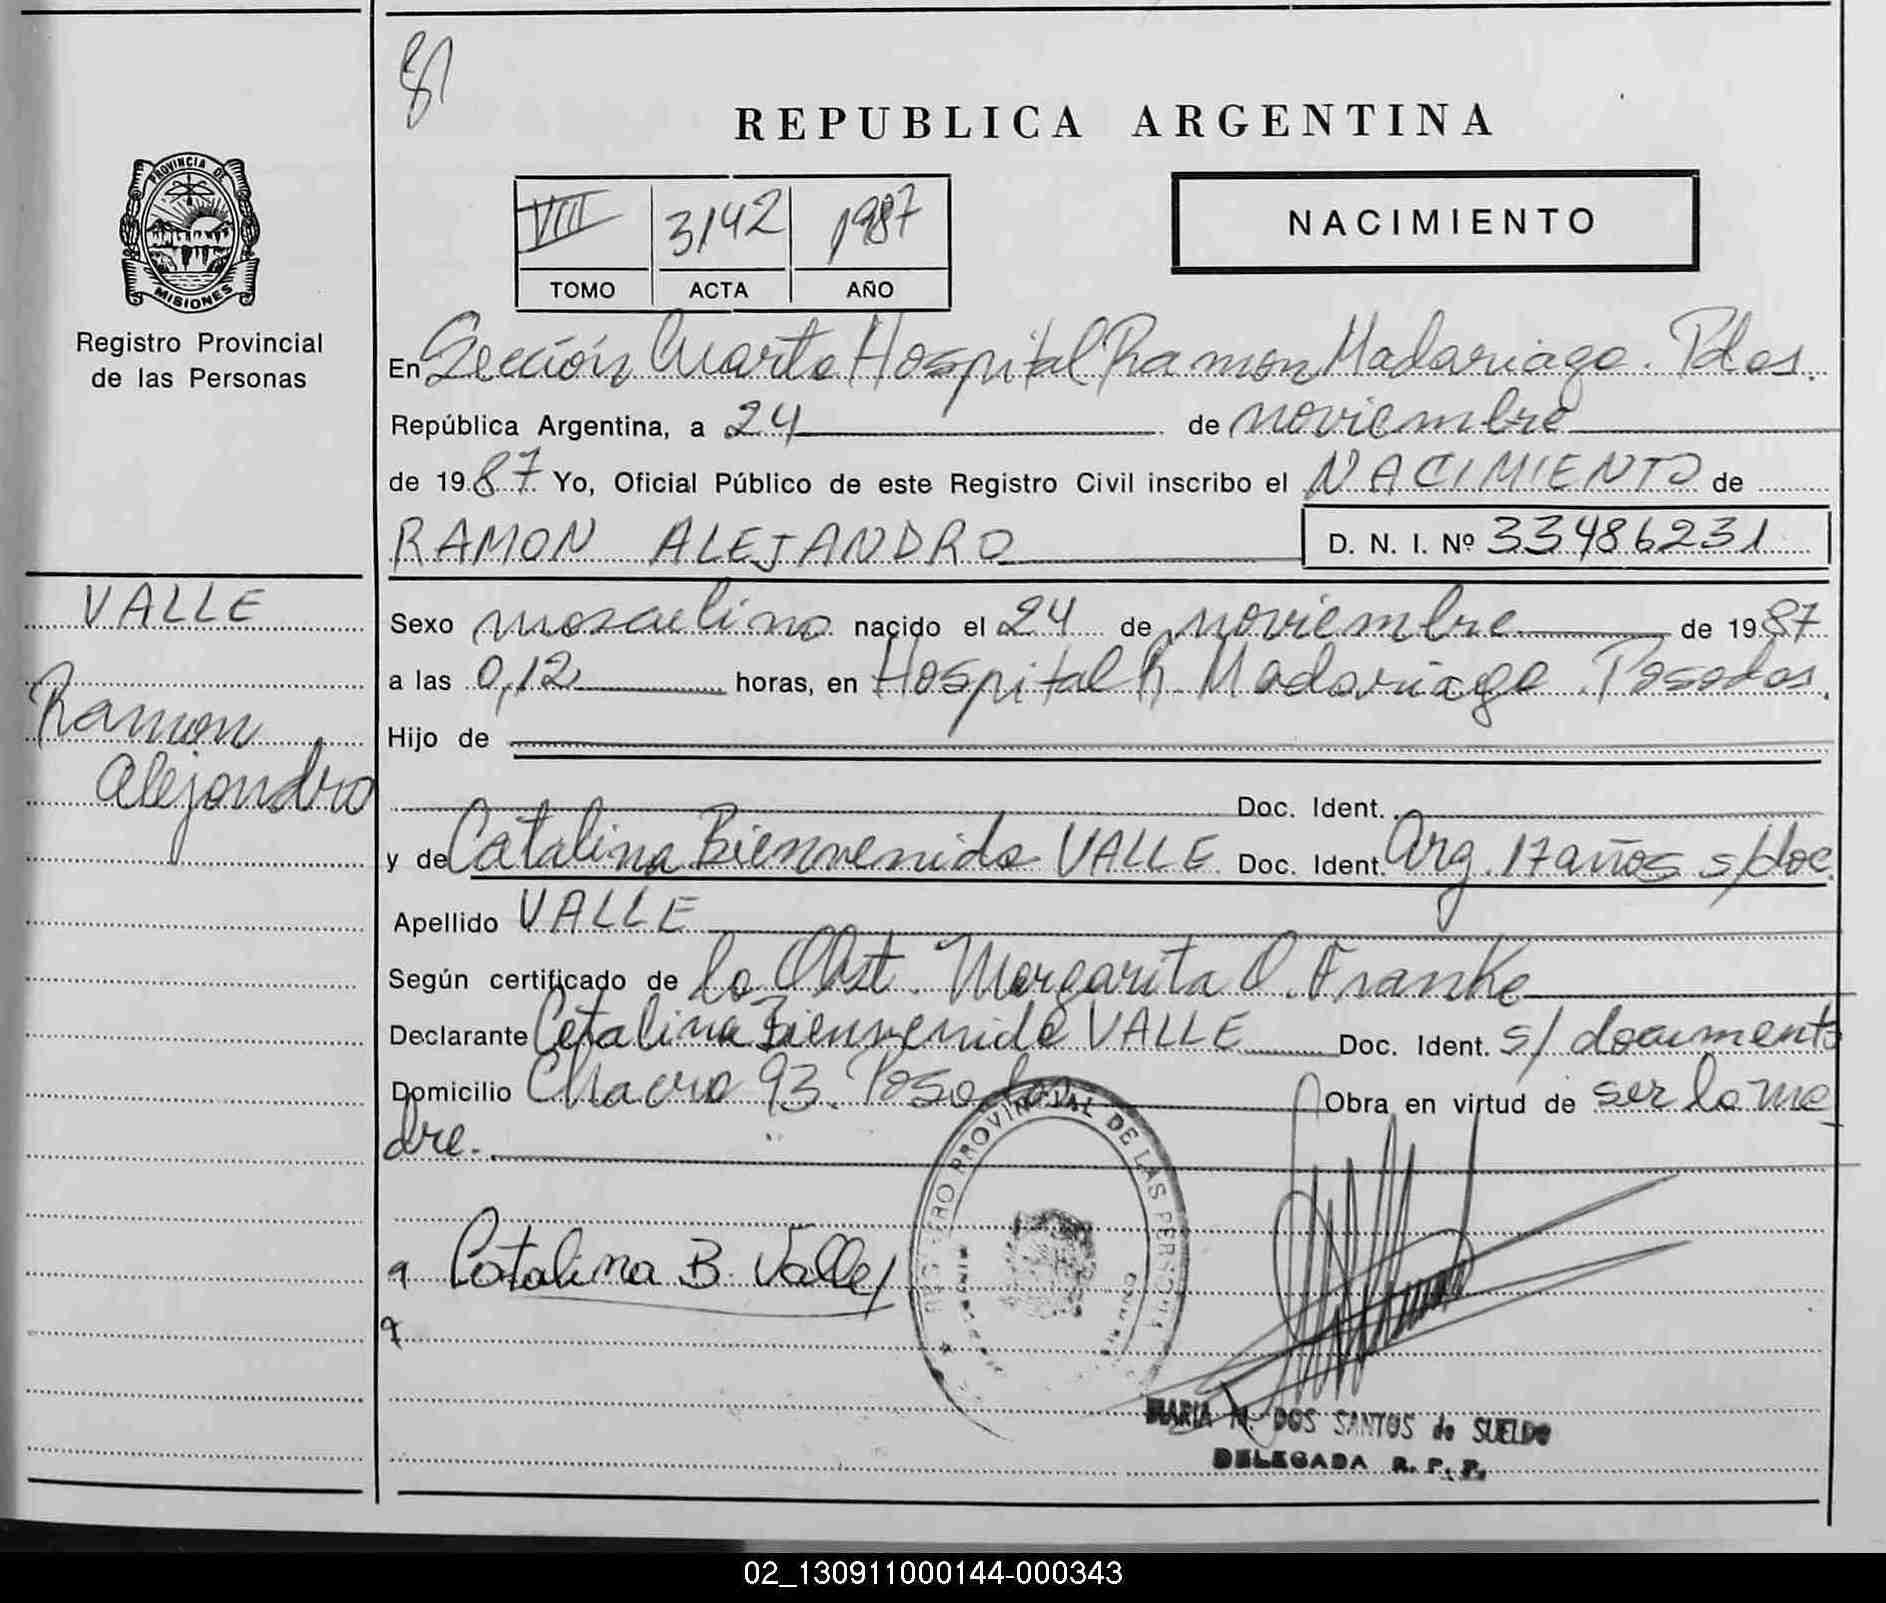 81
REPUBLICA ARGENTINA
PROVINCIA DE
MISIONES
VIII 3142 1987
TOMO ACTA AÑO
NACIMIENTO
Registro Provincial
de las Personas
En Sección Cuarta Hospital Ramon Madariaga. Pdas.
República Argentina, a 24 de noviembre
de 1987 Yo, Oficial Público de este Registro Civil inscribo el NACIMIENTO de
RAMON ALEJANDRO D. N. I. Nº 33486231
VALLE
Ramon
Alejandro
Sexo masculino nacido el 24 de noviembre de 1987
a las 0,12 horas, en Hospital R. Madariaga. Posadas.
Hijo de
Doc. Ident.
y de Catalina Bienvenida VALLE Doc. Ident. Arg. 17 años s/doc.
Apellido VALLE
Según certificado de la Obst. Margarita O. Franke
Declarante Catalina Bienvenida VALLE Doc. Ident. s/ documento
Domicilio Chacra 93. Posadas Obra en virtud de ser la ma
dre.
REGISTRO PROVINCIAL DE LAS PERSONAS
Catalina B. Valle
MARIA M. DOS SANTOS de SUELDO
DELEGADA R. P. P.
02_130911000144-000343